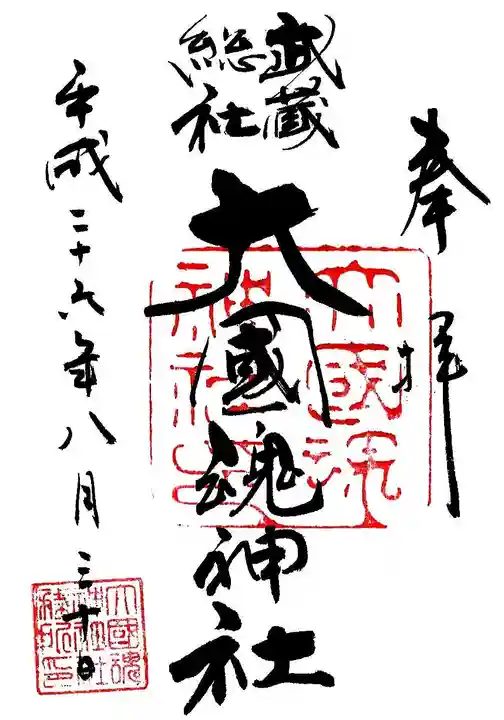 奉拝
武蔵
総社
大國魂神社
平成二十六年八月三十日
大國魂
神社